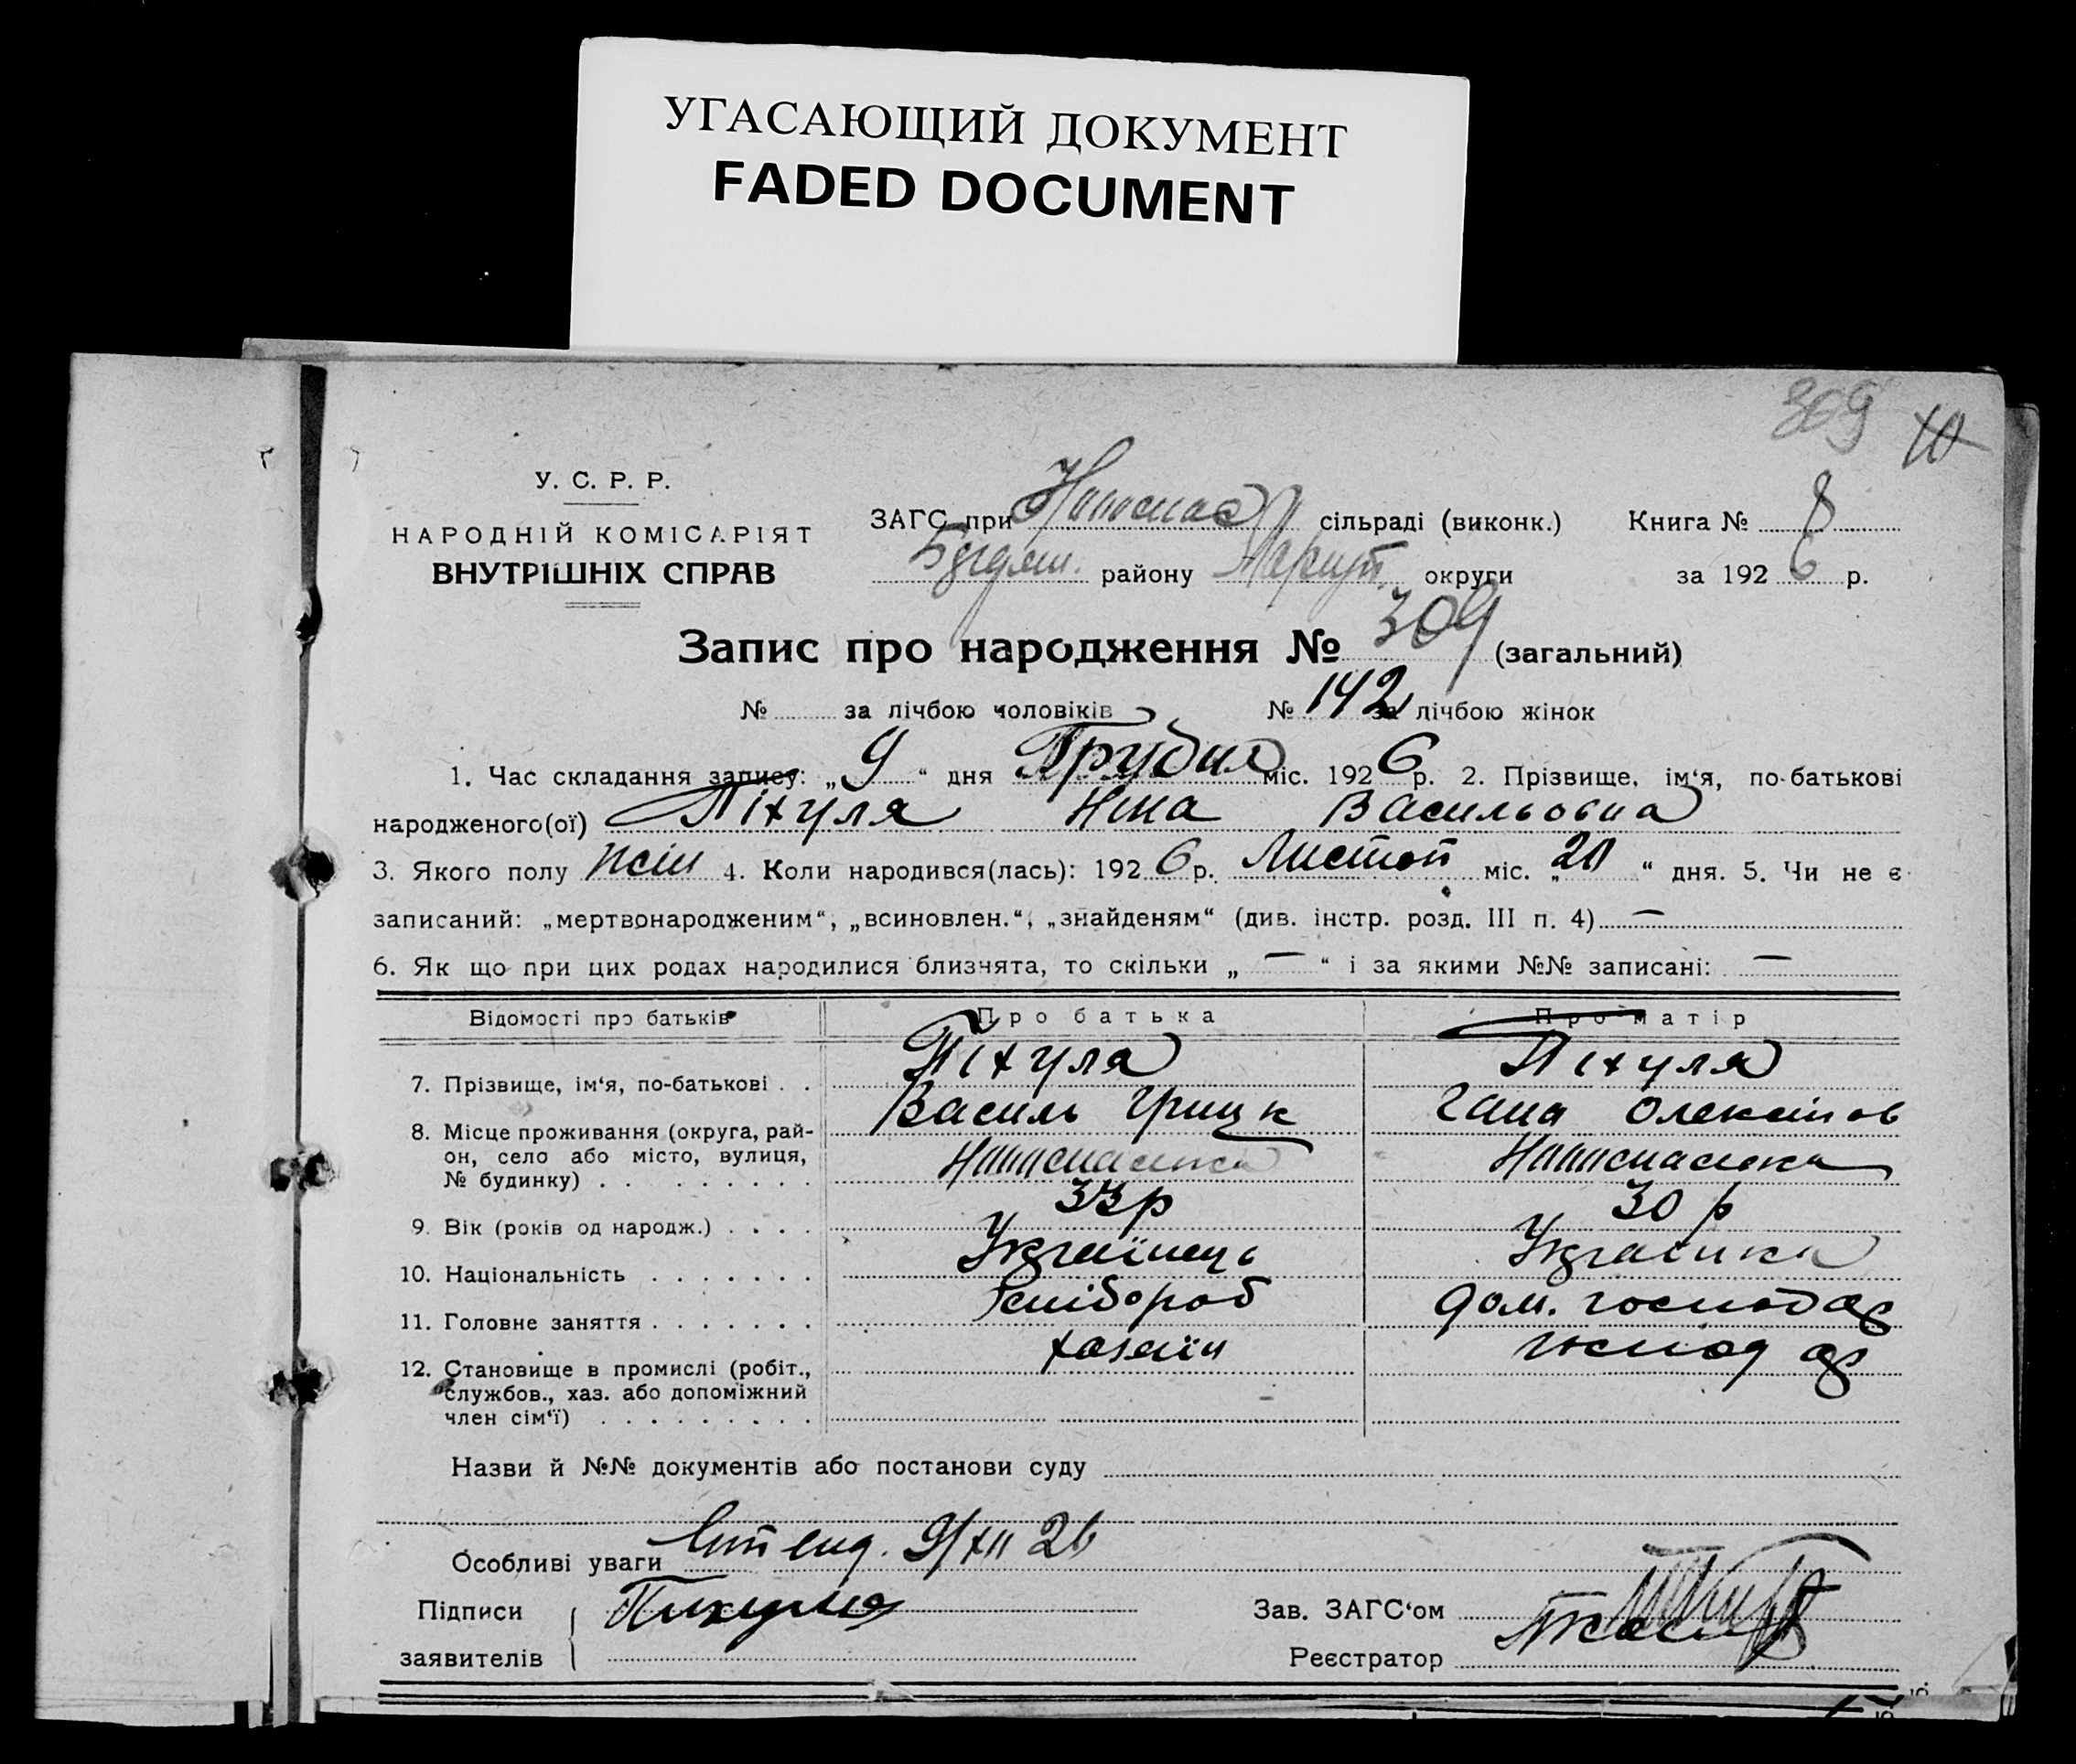 УГАСАЮЩИЙ ДОКУМЕНТ
FADED DOCUMENT
309 10
У. С. Р. Р.
НАРОДНІЙ КОМІСАРІЯТ
ВНУТРІШНІХ СПРАВ
ЗАГС при сільраді (виконк.) Книга № 8
району Маріуп. округи за 192 6 р.
Запис про народження № 309 (загальний)
№ за лічбою чоловіків № 142 за лічбою жінок
1. Час складання запису: „ 9 “ дня Грудня міс. 192 6 р. 2. Прізвище, ім‘я, по-батькові
народженого(ої) Піхуля Ніна Васильовна
3. Якого полу жін 4. Коли народився(лась): 192 6 р. Листоп міс. „ 20 “ дня. 5. Чи не є
записаний: „мертвонародженим“, „всиновлен.“, „знайденям“ (див. інстр. розд. III п. 4) —
6. Як що при цих родах народилися близнята, то скільки „ — “ і за якими №№ записані: —
Відомості про батьків Про батька Про матір
7. Прізвище, ім‘я, по-батькові . . Піхуля Піхуля
Василь Грицьк Гана Олексіїов
8. Місце проживання (округа, рай-
он, село або місто, вулиця,
№ будинку) . . Новоспасівка Новоспасівка
9. Вік (років од народж.) . . . . 33 р 30 р
10. Національність . . . . . . . Українець Українка
11. Головне заняття . . . . . . . хлібороб дом. господар
12. Становище в промислі (робіт.,
службов., хаз. або допоміжний
член сім‘ї) . . . . . . . . . хазяїн господар
Назви й №№ документів або постанови суду
Особливі уваги 9/XII 26
Підписи Пихуля Зав. ЗАГС‘ом
заявителів Реєстратор